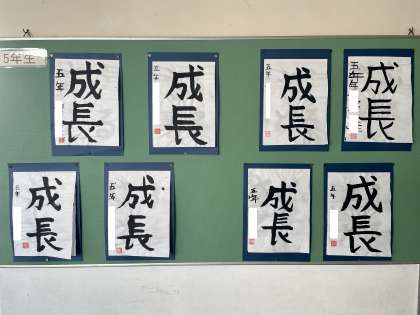 5年生
五年
成長
五年
成長
五年
成長
五年
成長
五年
成長
五年
成長
五年
成長
五年
成長